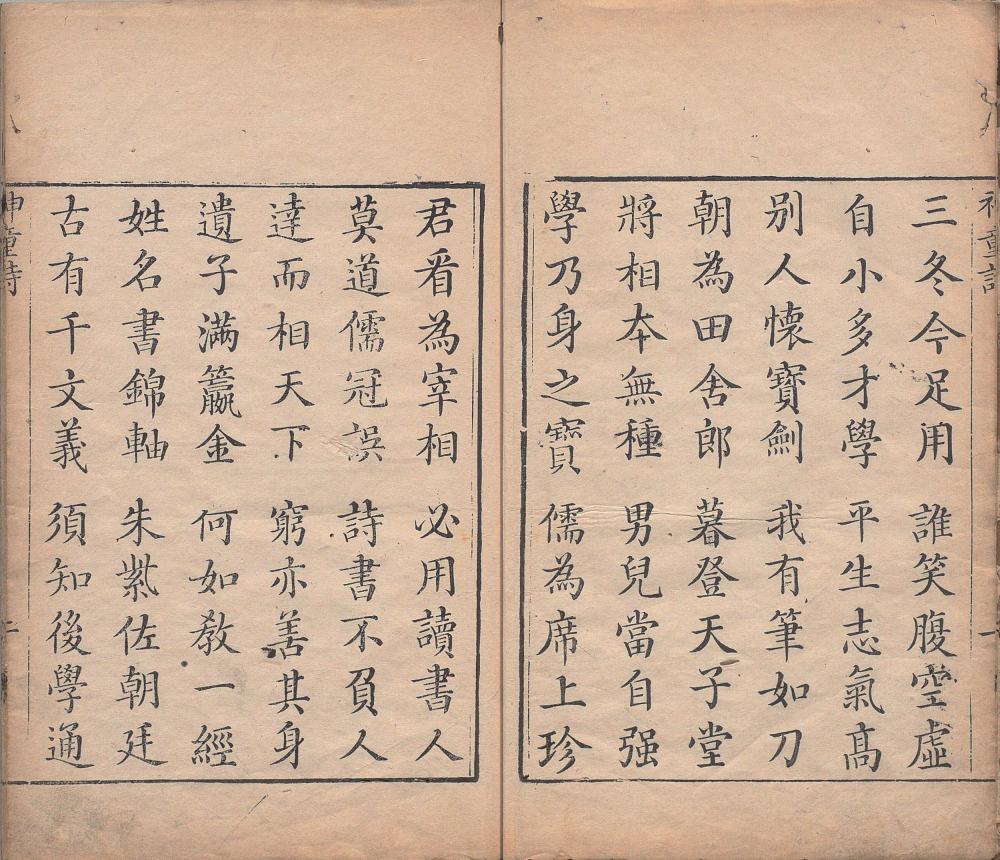 神童詩
三冬今足用 誰笑腹空虛
自小多才學 平生志氣高
別人懷寶劍 我有筆如刀
朝為田舍郎 暮登天子堂
將相本無種 男兒當自强
學乃身之寶 儒為席上珍
君看為宰相 必用讀書人
莫道儒冠誤 詩書不負人
達而相天下 窮亦善其身
遺子滿籯金 何如敎一經
姓名書錦軸 朱紫佐朝廷
古有千文義 須知後學通
神童詩